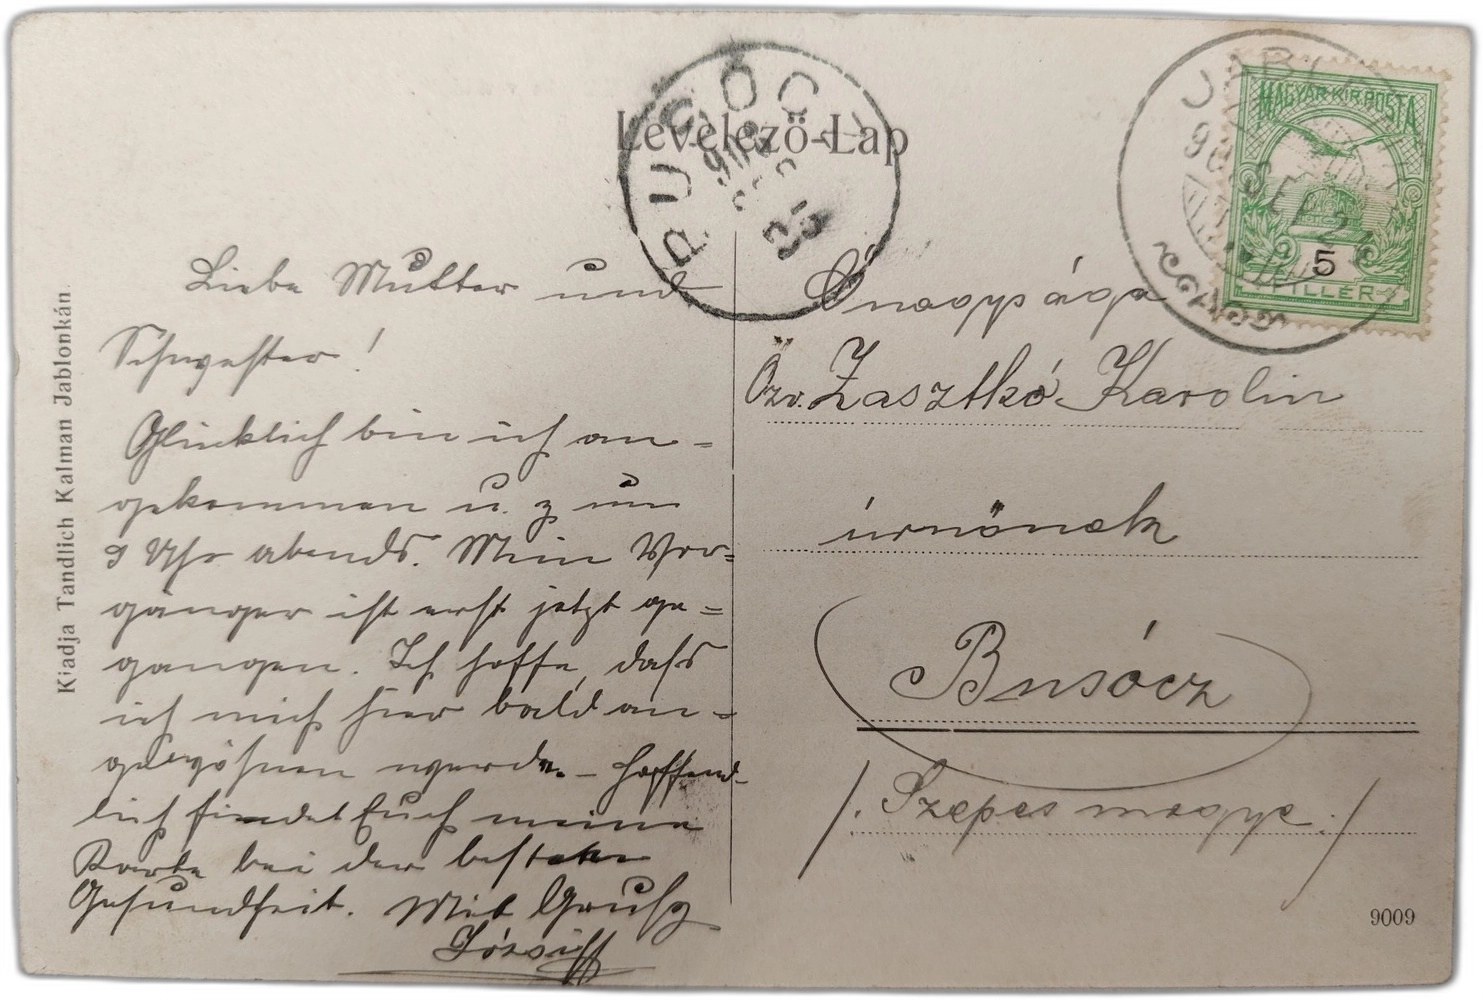 Levelező-Lap
MAGYAR KIR. POSTA
5
FILLER
Kiadja Tandlich Kalman Jablonkán.
Liebe Mutter und
Schwester!
Glücklich bin ich an-
gekommen u. z. um
9 Uhr abends. Mein Vor-
gänger ist erst jetzt ge-
gangen. Ich hoffe, dass
ich mich hier bald an-
gewöhnen werde – hoffend-
lich findet Euch meine
Karte bei der besten
Gesundheit. Mit Grusz
Józsi
Őnagysága
Özv. Zasztkó Karolin
úrnőnek
Busócz
/. Szepes megye ./
9009